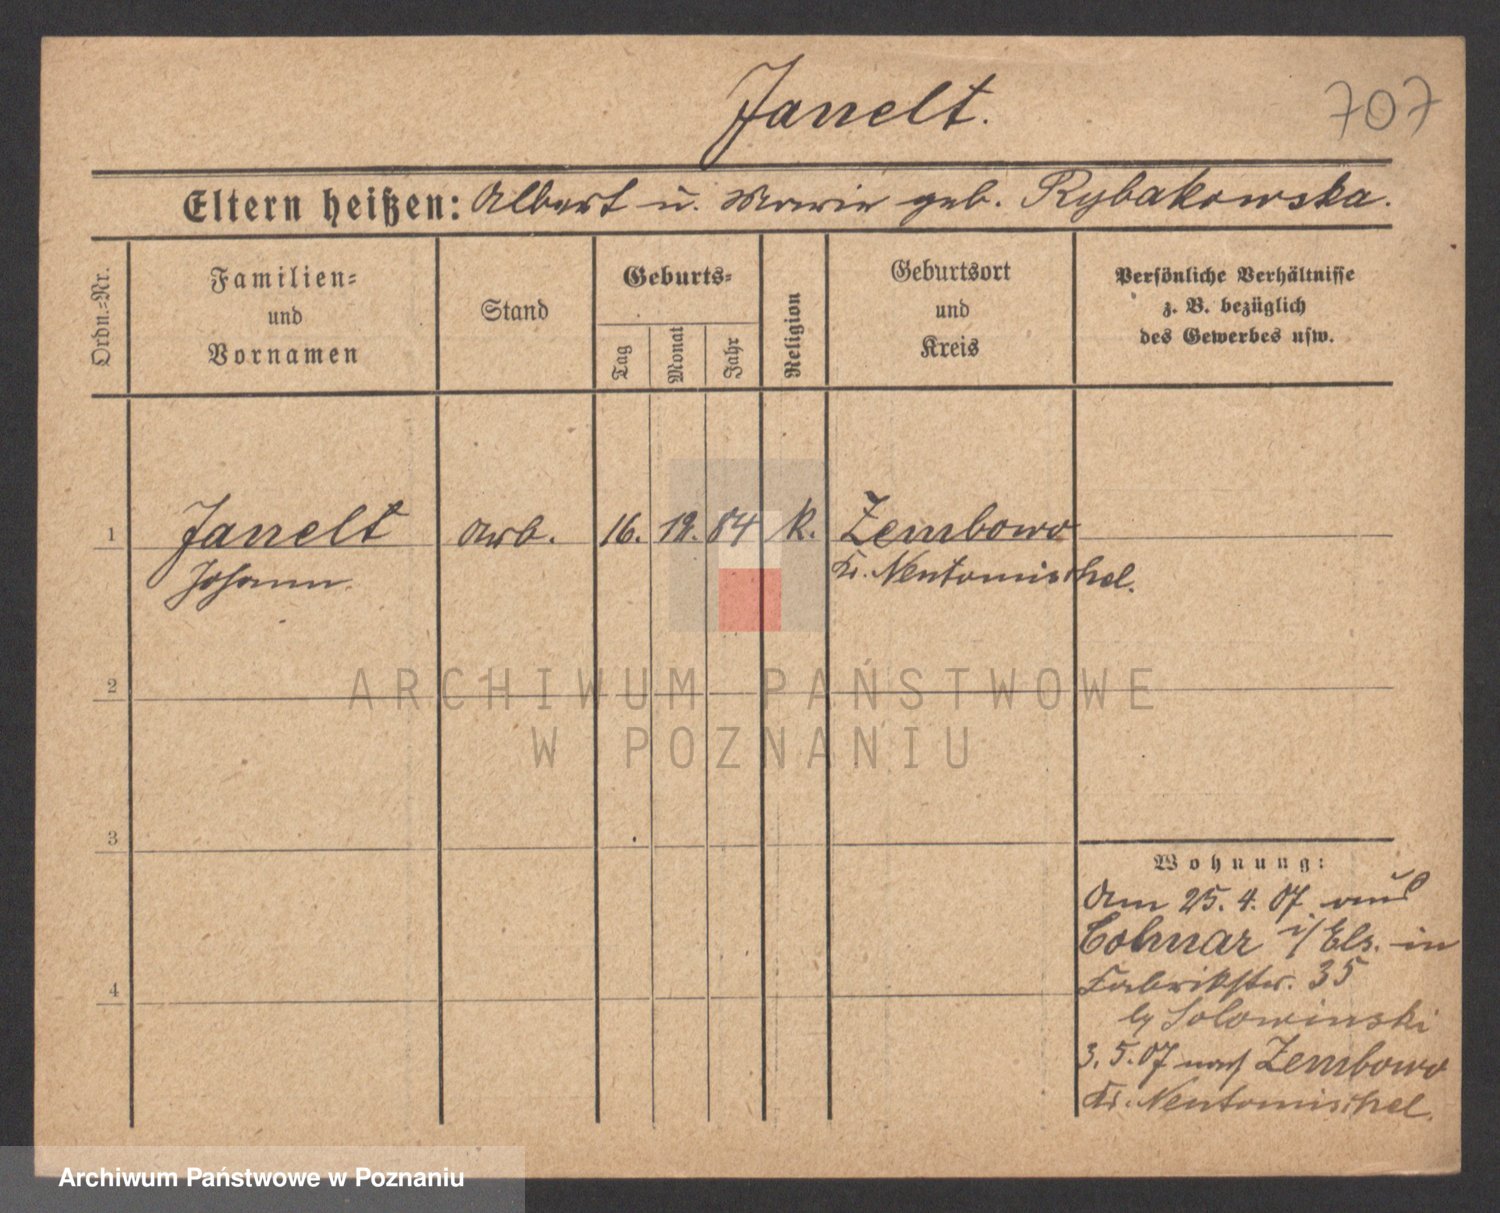 Janelt.
707
Eltern heißen: Albert u. Marie geb. Rybakowska.
Ordn.-Nr.
Familien-
und
Vornamen
Stand
Geburts-
Tag
Monat
Jahr
Religion
Geburtsort
und
Kreis
Persönliche Verhältnisse
z. B. bezüglich
des Gewerbes usw.
1 Janelt Arb. 16. 12. 84 K. Zembowo
Johann Kr. Neutomischel.
2
3
4
Wohnung:
Am 25. 4. 07 aus
Colmar i/ Els. in
Fabrikstr. 35
by Solowinski
3. 5. 07 nach Zembowo
Kr. Neutomischel.
ARCHIWUM PAŃSTWOWE
W POZNANIU
Archiwum Państwowe w Poznaniu